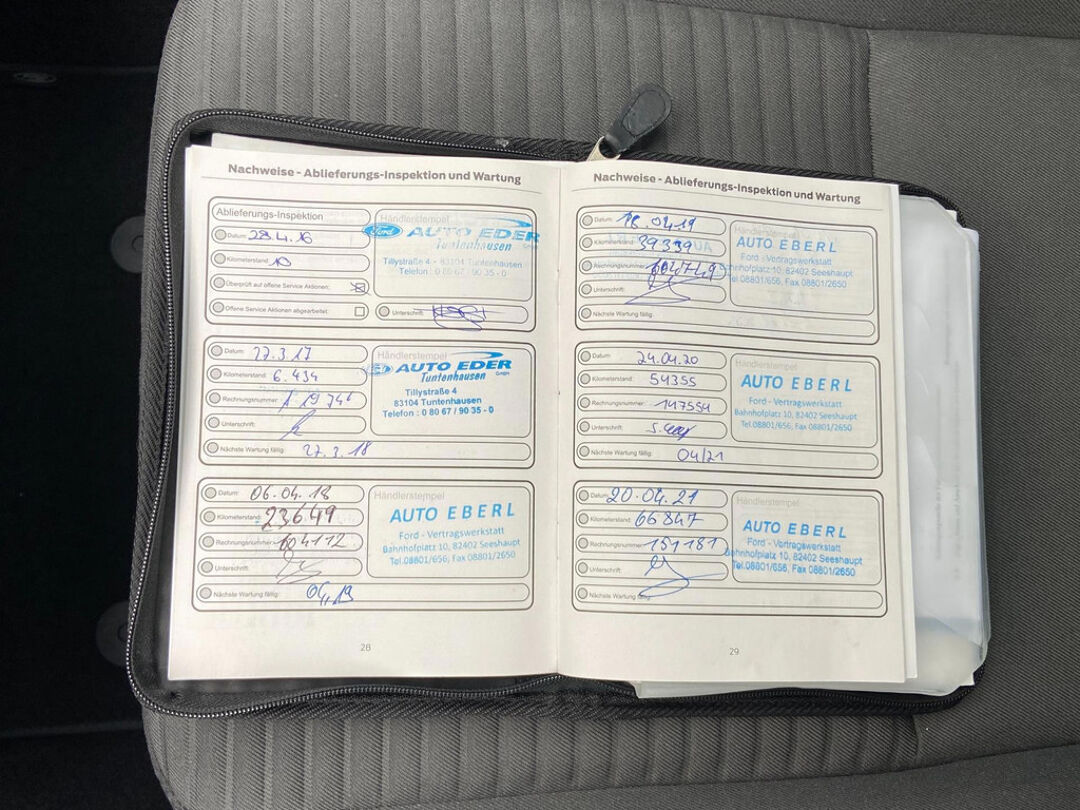 Nachweise - Ablieferungs-Inspektion und Wartung
Ablieferungs-Inspektion
Datum: 28.4.16
Kilometerstand: 10
Überprüft auf offene Service Aktionen:
Offene Service Aktionen abgearbeitet:
Händlerstempel
Ford AUTO EDER
Tuntenhausen
Tillystraße 4 - 83104 Tuntenhausen
Telefon: 0 80 67 / 90 35 - 0
Unterschrift:
Datum: 27.3.17
Kilometerstand: 6.434
Rechnungsnummer:
Unterschrift:
Nächste Wartung fällig: 27.3.18
Händlerstempel
AUTO EDER
Tuntenhausen GmbH
Tillystraße 4
83104 Tuntenhausen
Telefon: 0 80 67 / 90 35 - 0
Datum: 06.04.18
Kilometerstand: 23649
Rechnungsnummer: 104112
Unterschrift:
Nächste Wartung fällig: 04.19
Händlerstempel
AUTO EBERL
Ford - Vertragswerkstatt
Bahnhofplatz 10, 82402 Seeshaupt
Tel.08801/656, Fax 08801/2650
28
Nachweise - Ablieferungs-Inspektion und Wartung
Datum: 18.04.19
Kilometerstand: 39399
Rechnungsnummer:
Unterschrift:
Nächste Wartung fällig:
Händlerstempel
AUTO EBERL
Ford - Vertragswerkstatt
Bahnhofplatz 10, 82402 Seeshaupt
Tel.08801/656, Fax 08801/2650
Datum: 24.04.20
Kilometerstand: 54355
Rechnungsnummer: 147554
Unterschrift:
Nächste Wartung fällig: 04/21
Händlerstempel
AUTO EBERL
Ford - Vertragswerkstatt
Bahnhofplatz 10, 82402 Seeshaupt
Tel.08801/656, Fax 08801/2650
Datum: 20.04.21
Kilometerstand: 66847
Rechnungsnummer: 151181
Unterschrift:
Nächste Wartung fällig:
Händlerstempel
AUTO EBERL
Ford - Vertragswerkstatt
Bahnhofplatz 10, 82402 Seeshaupt
Tel.08801/656, Fax 08801/2650
29